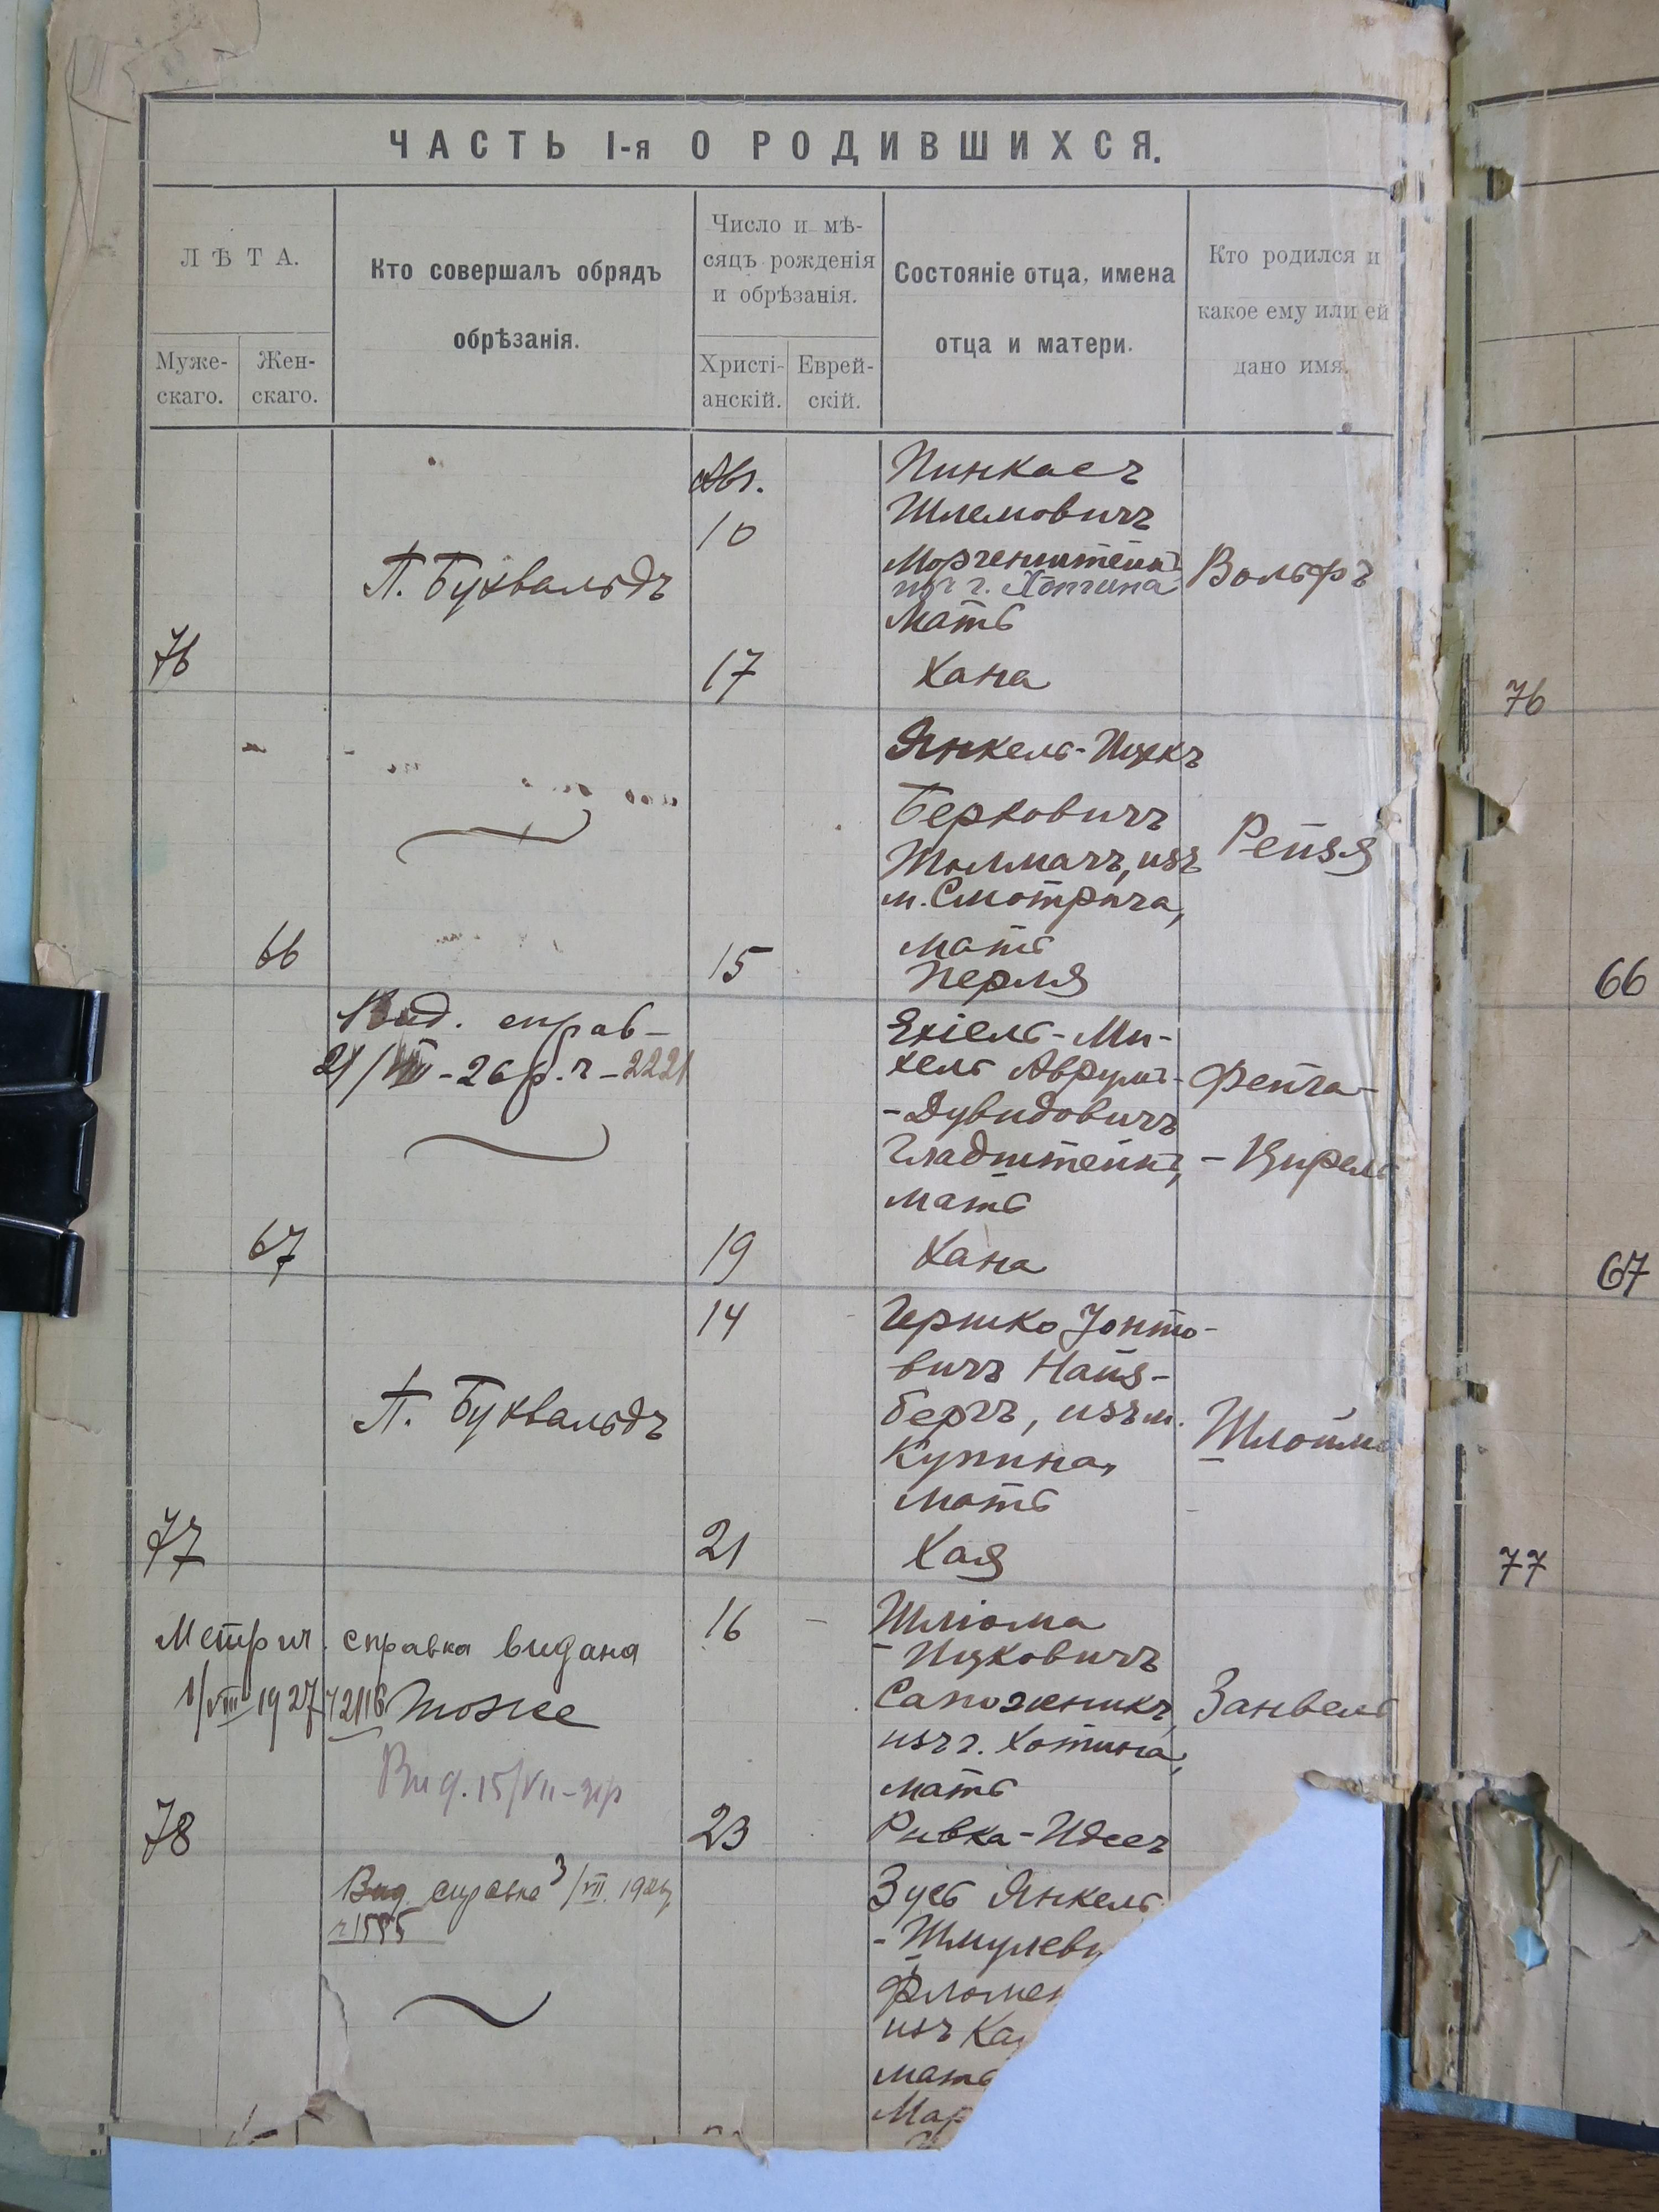 ЧАСТЬ I-я О РОДИВШИХСЯ.
ЛѢТА.
Муже-
скаго.
Жен-
скаго.
Кто совершалъ обрядъ
обрѣзанія.
Число и мѣ-
сяцъ рожденія
и обрѣзанія.
Христі-
анскій.
Еврей-
скій.
Состояніе отца, имена
отца и матери.
Кто родился и
какое ему или ей
дано имя.
76
П. Буквальдъ
Авг.
10
17
Пинкасъ
Шлемовичъ
Моргенштейнъ
изъ г. Хотина
Мать
Хана
Вольфъ
76
66
15
Янкель-Ицкъ
Берковичъ
Толмачъ, изъ
м. Смотрича,
мать
Перля
Рейзя
66
Вид. справ-
21/VIII-26 р. ч-2221
67
19
Ехіель-Ми-
хель Аврумъ-
-Дувидовичъ
Гладштейнъ,
мать
Хана
Фейга-
-Цирель
67
П. Буквальдъ
77
14
21
Гершко Іонто-
вичъ Найз-
бергъ, изъ м.
Купина,
мать
Хая
Шлойма
77
Метрич. справка видана
1/VIII 1927 ч 2116
тоже
Вид. 15/VII-
78
16
23
Шліома
-Ицковичъ
Сапожникъ,
изъ г. Хотина,
мать
Ривка-Идесъ
Занвель
Вид. справка 3/VII.
ч 1555
Зусь Янкель
-Шмулеви
Фломен
изъ Ка
мать
Мар